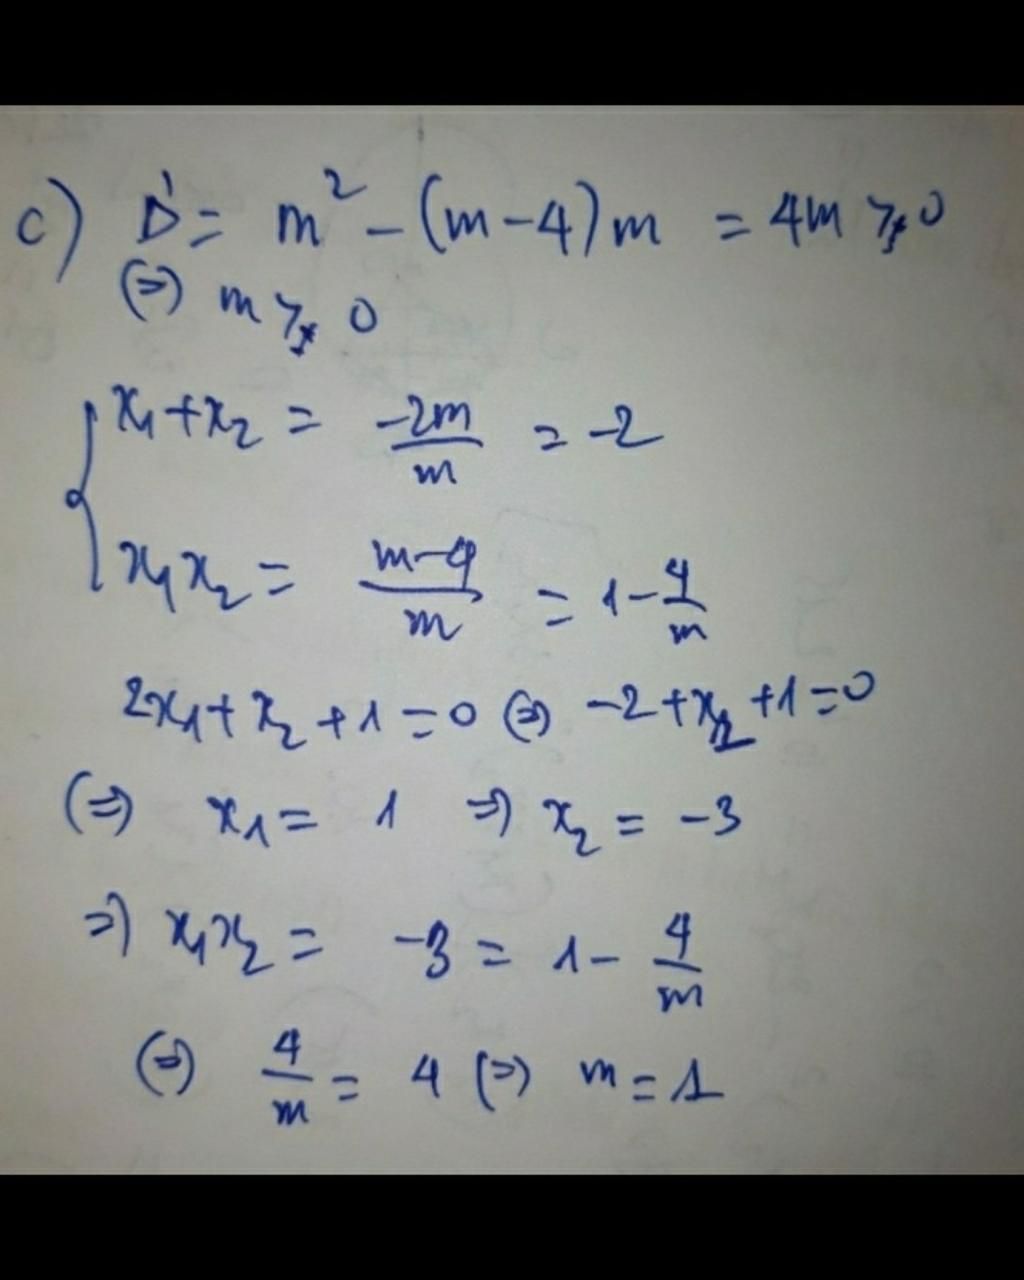 c) Δ' = m² - (m-4)m = 4m ≥ 0
(=) m ≥ 0
{ x₁+x₂ = -2m/m = -2
x₁x₂ = m-4/m = 1 - 4/m
2x₁+x₂+1=0 (=) -2+x₁+1=0
(=) x₁ = 1 =) x₂ = -3
=) x₁x₂ = -3 = 1 - 4/m
(=) 4/m = 4 (=) m = 1